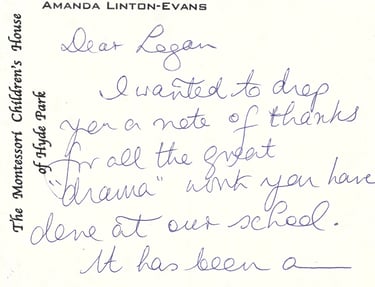 AMANDA LINTON-EVANS
The Montessori Children's House
of Hyde Park
Dear Logan
I wanted to drop
you a note of thanks
for all the great
"drama" work you have
done at our school.
It has been a